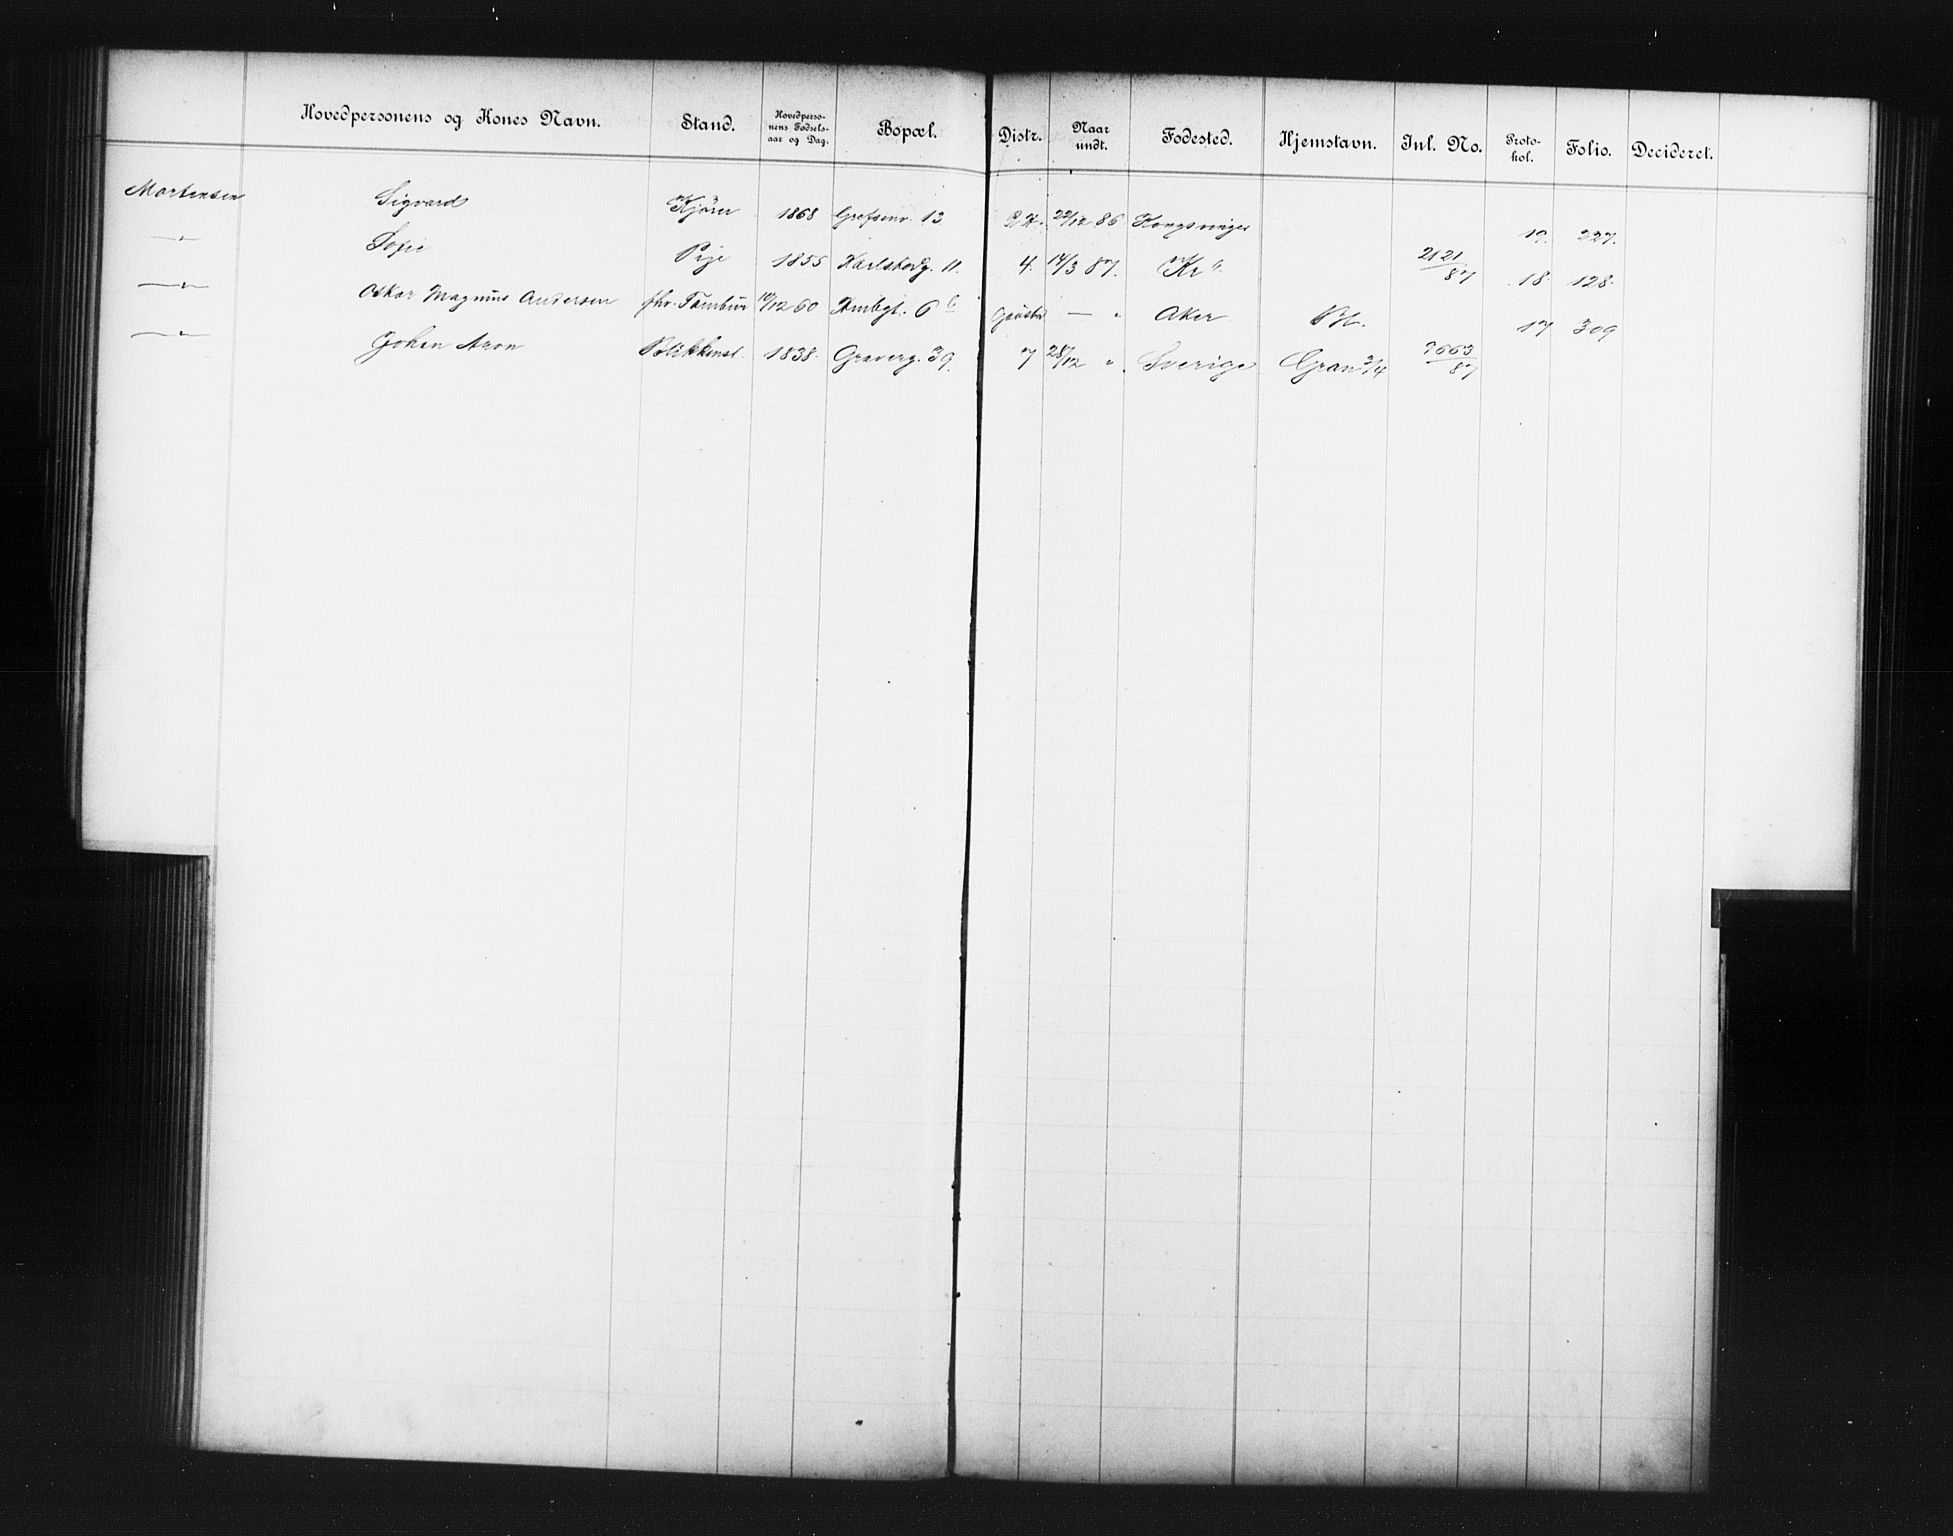 Hovedpersonens og Kones Navn. Stand. Hovedpersonens Fødselsaar og Dag. Bopæl. Distr. Naar undt. Fødested. Hjemstavn. Inl. No. Protokol. Folio. Decideret.
Mortensen Sigvard Kjører 1868 Grefsenv. 13 22/12 86 Kongsvinger 19. 227.
—"— Sofie Pige 1855 Karlsborg. 11. 4. 14/3 87. Kra 2121/87 18. 128.
—"— Oskar Magnus Andersen fhv. Tambur 10/12 60 6 b Gausta — " Aker 17 309
—"— Johan Aron Blikkensl. 1838. Graverg. 39. 7 28/12 " Sverige Gran 3/4 9663/87